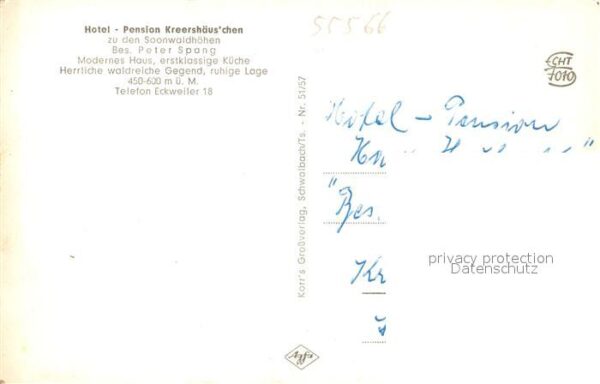 Hotel - Pension Kreershäus'chen
zu den Soonwaldhöhen
Bes. Peter Spang
Modernes Haus, erstklassige Küche
Herrliche waldreiche Gegend, ruhige Lage
450-600 m ü. M.
Telefon Eckweiler 18
55566
ECHT
7010
Korr's Großverlag, Schwalbach/Ts. - Nr. 51/57
Hotel - Pension
"Bes.
Kr
privacy protection
Datenschutz
Agfa